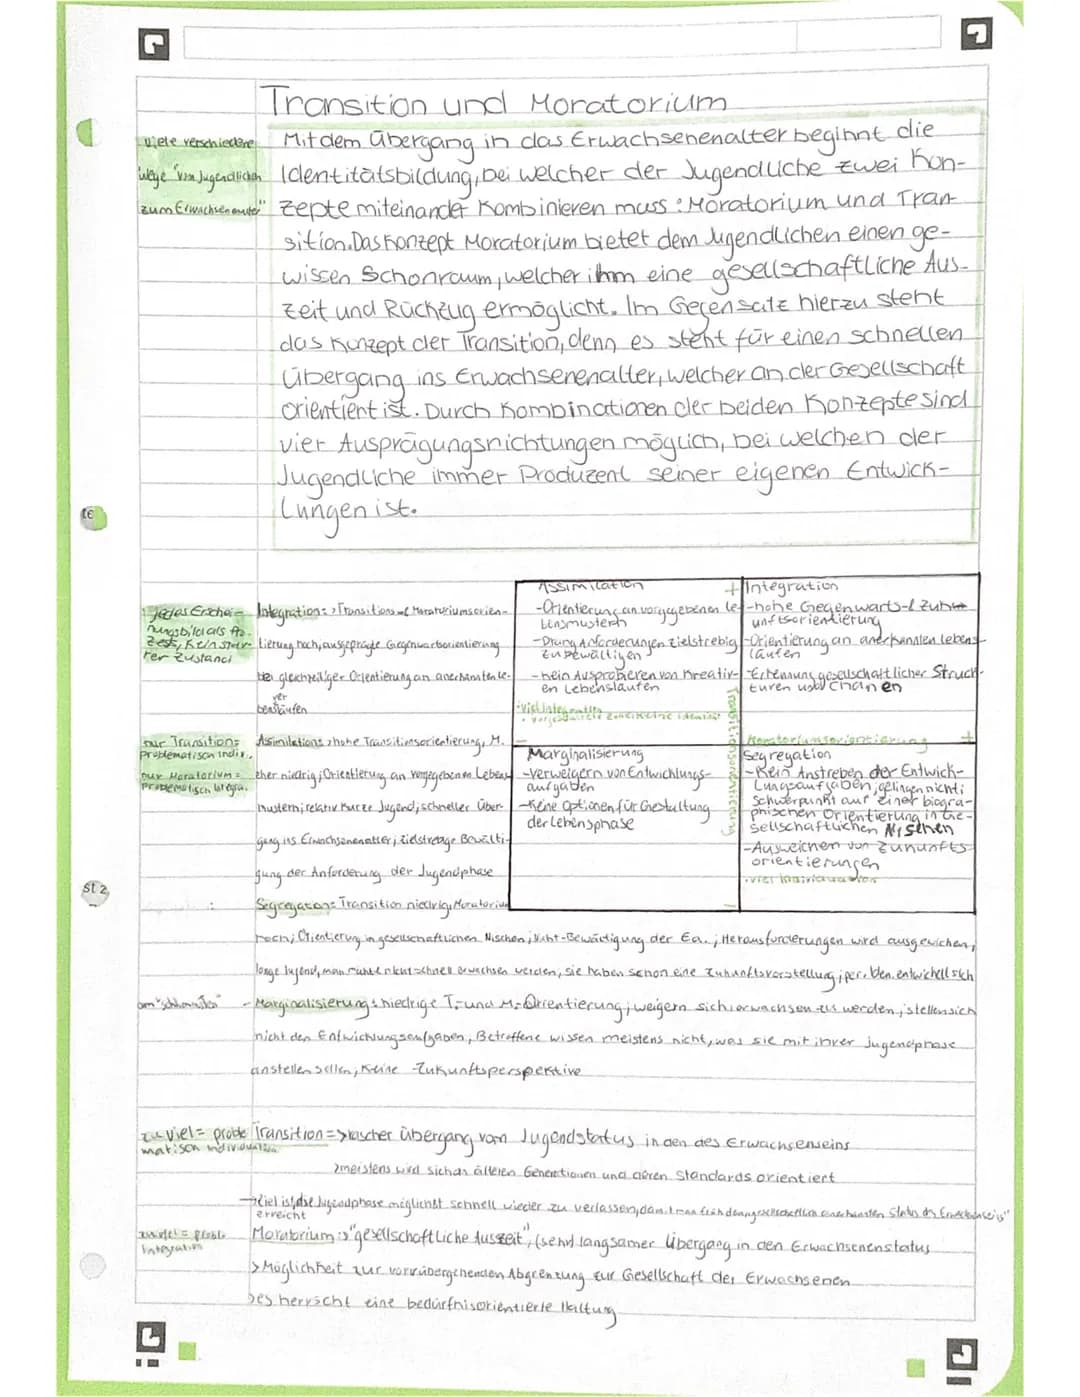 Transition und Moratorium
viele verschiedene
Wege "vom Jugendlichen
zum Erwachsenenalter"
Mit dem Übergang in das Erwachsenenalter beginnt die
Identitätsbildung, bei welcher der Jugendliche zwei Kon-
zepte miteinander kombinieren muss: Moratorium und Tran-
sition. Das Konzept Moratorium bietet dem Jugendlichen einen ge-
wissen Schonraum, welcher ihm eine gesellschaftliche Aus-
zeit und Rückzug ermöglicht. Im Gegensatz hierzu steht
das Konzept der Transition, denn es steht für einen schnellen
Übergang ins Erwachsenenalter, welcher an der Gesellschaft
orientiert ist. Durch Kombinationen der beiden Konzepte sind
vier Ausprägungsrichtungen möglich, bei welchen der
Jugendliche immer Produzent seiner eigenen Entwick-
lungen ist.
t6
jedes Erschei-
nungsbild als Pro-
zess, kein star-
rer Zustand
Integration: >Transitions- & Moratoriumsorien-
tierung hoch, ausgeprägte Gegenwartsorientierung
bei gleichzeitiger Orientierung an anerkannten Le-
bensläufen
nur Transition=
problematisch indiv.
nur Moratorium=
problematisch Integra.
Assimilation: >hohe Transitionsorientierung, M.
eher niedrig; Orientierung an vorgegebenen Lebens-
mustern; relativ kurze Jugend; schneller Über-
gang ins Erwachsenenalter; zielstrebige Bewälti-
gung der Anforderung der Jugendphase
Assimilation
-Orientierung an vorgegebenen Le-
bensmustern
-Drang Anforderungen zielstrebig
zu bewältigen
-kein Ausprobieren von kreativ-
en Lebensläufen
•viel Integration
+ Integration
-hohe Gegenwarts- & Zuk
unftsorientierung
-Orientierung an anerkannten Lebens-
läufen
-Erkennung gesellschaftlicher Struck-
turen und Chancen
Transitionsorientierung
Moratoriumsorientierung +
Marginalisierung
-verweigern von Entwicklungs-
aufgaben
-keine Optionen für Gestaltung
der Lebensphase
Segregation
-Kein Anstreben der Entwick-
lungsaufgaben, gelingen nicht;
Schwerpunkt auf einer biogra-
phischen Orientierung in Ge-
sellschaftlichen Nischen
-Ausweichen von Zukunfts-
orientierungen
•viel Individuation
st 2
Segregation: Transition niedrig, Moratorium
hoch; Orientierung in gesellschaftlichen Nischen; Nicht-Bewältigung der Ea.; Herausforderungen wird ausgewichen,
lange Jugend, man möchte nicht schnell erwachsen werden, sie haben schon eine Zukunftsvorstellung;
-Marginalisierung: niedrige T.- und M.-Orientierung; weigern sich erwachsen zu werden, stellen sich
nicht den Entwicklungsaufgaben, Betroffene wissen meistens nicht, was sie mit ihrer Jugendphase
anstellen sollen, keine Zukunftsperspektive
zu viel= proble
matisch individuation
Transition=>rascher Übergang vom Jugendstatus in den des Erwachsenseins
>meistens wird sich an älteren Generationen und deren Standards orientiert
→Ziel ist, die Jugendphase möglichst schnell wieder zu verlassen, damit man den gesellschaftlich anerkannten Status des Erwachsenseins"
erreicht
zu viel= proble
Integration
Moratorium:>"gesellschaftliche Auszeit", (sehr) langsamer Übergang in den Erwachsenenstatus
>Möglichkeit zur vorübergehenden Abgrenzung zur Gesellschaft der Erwachsenen
>es herrscht eine bedürfnisorientierte Haltung